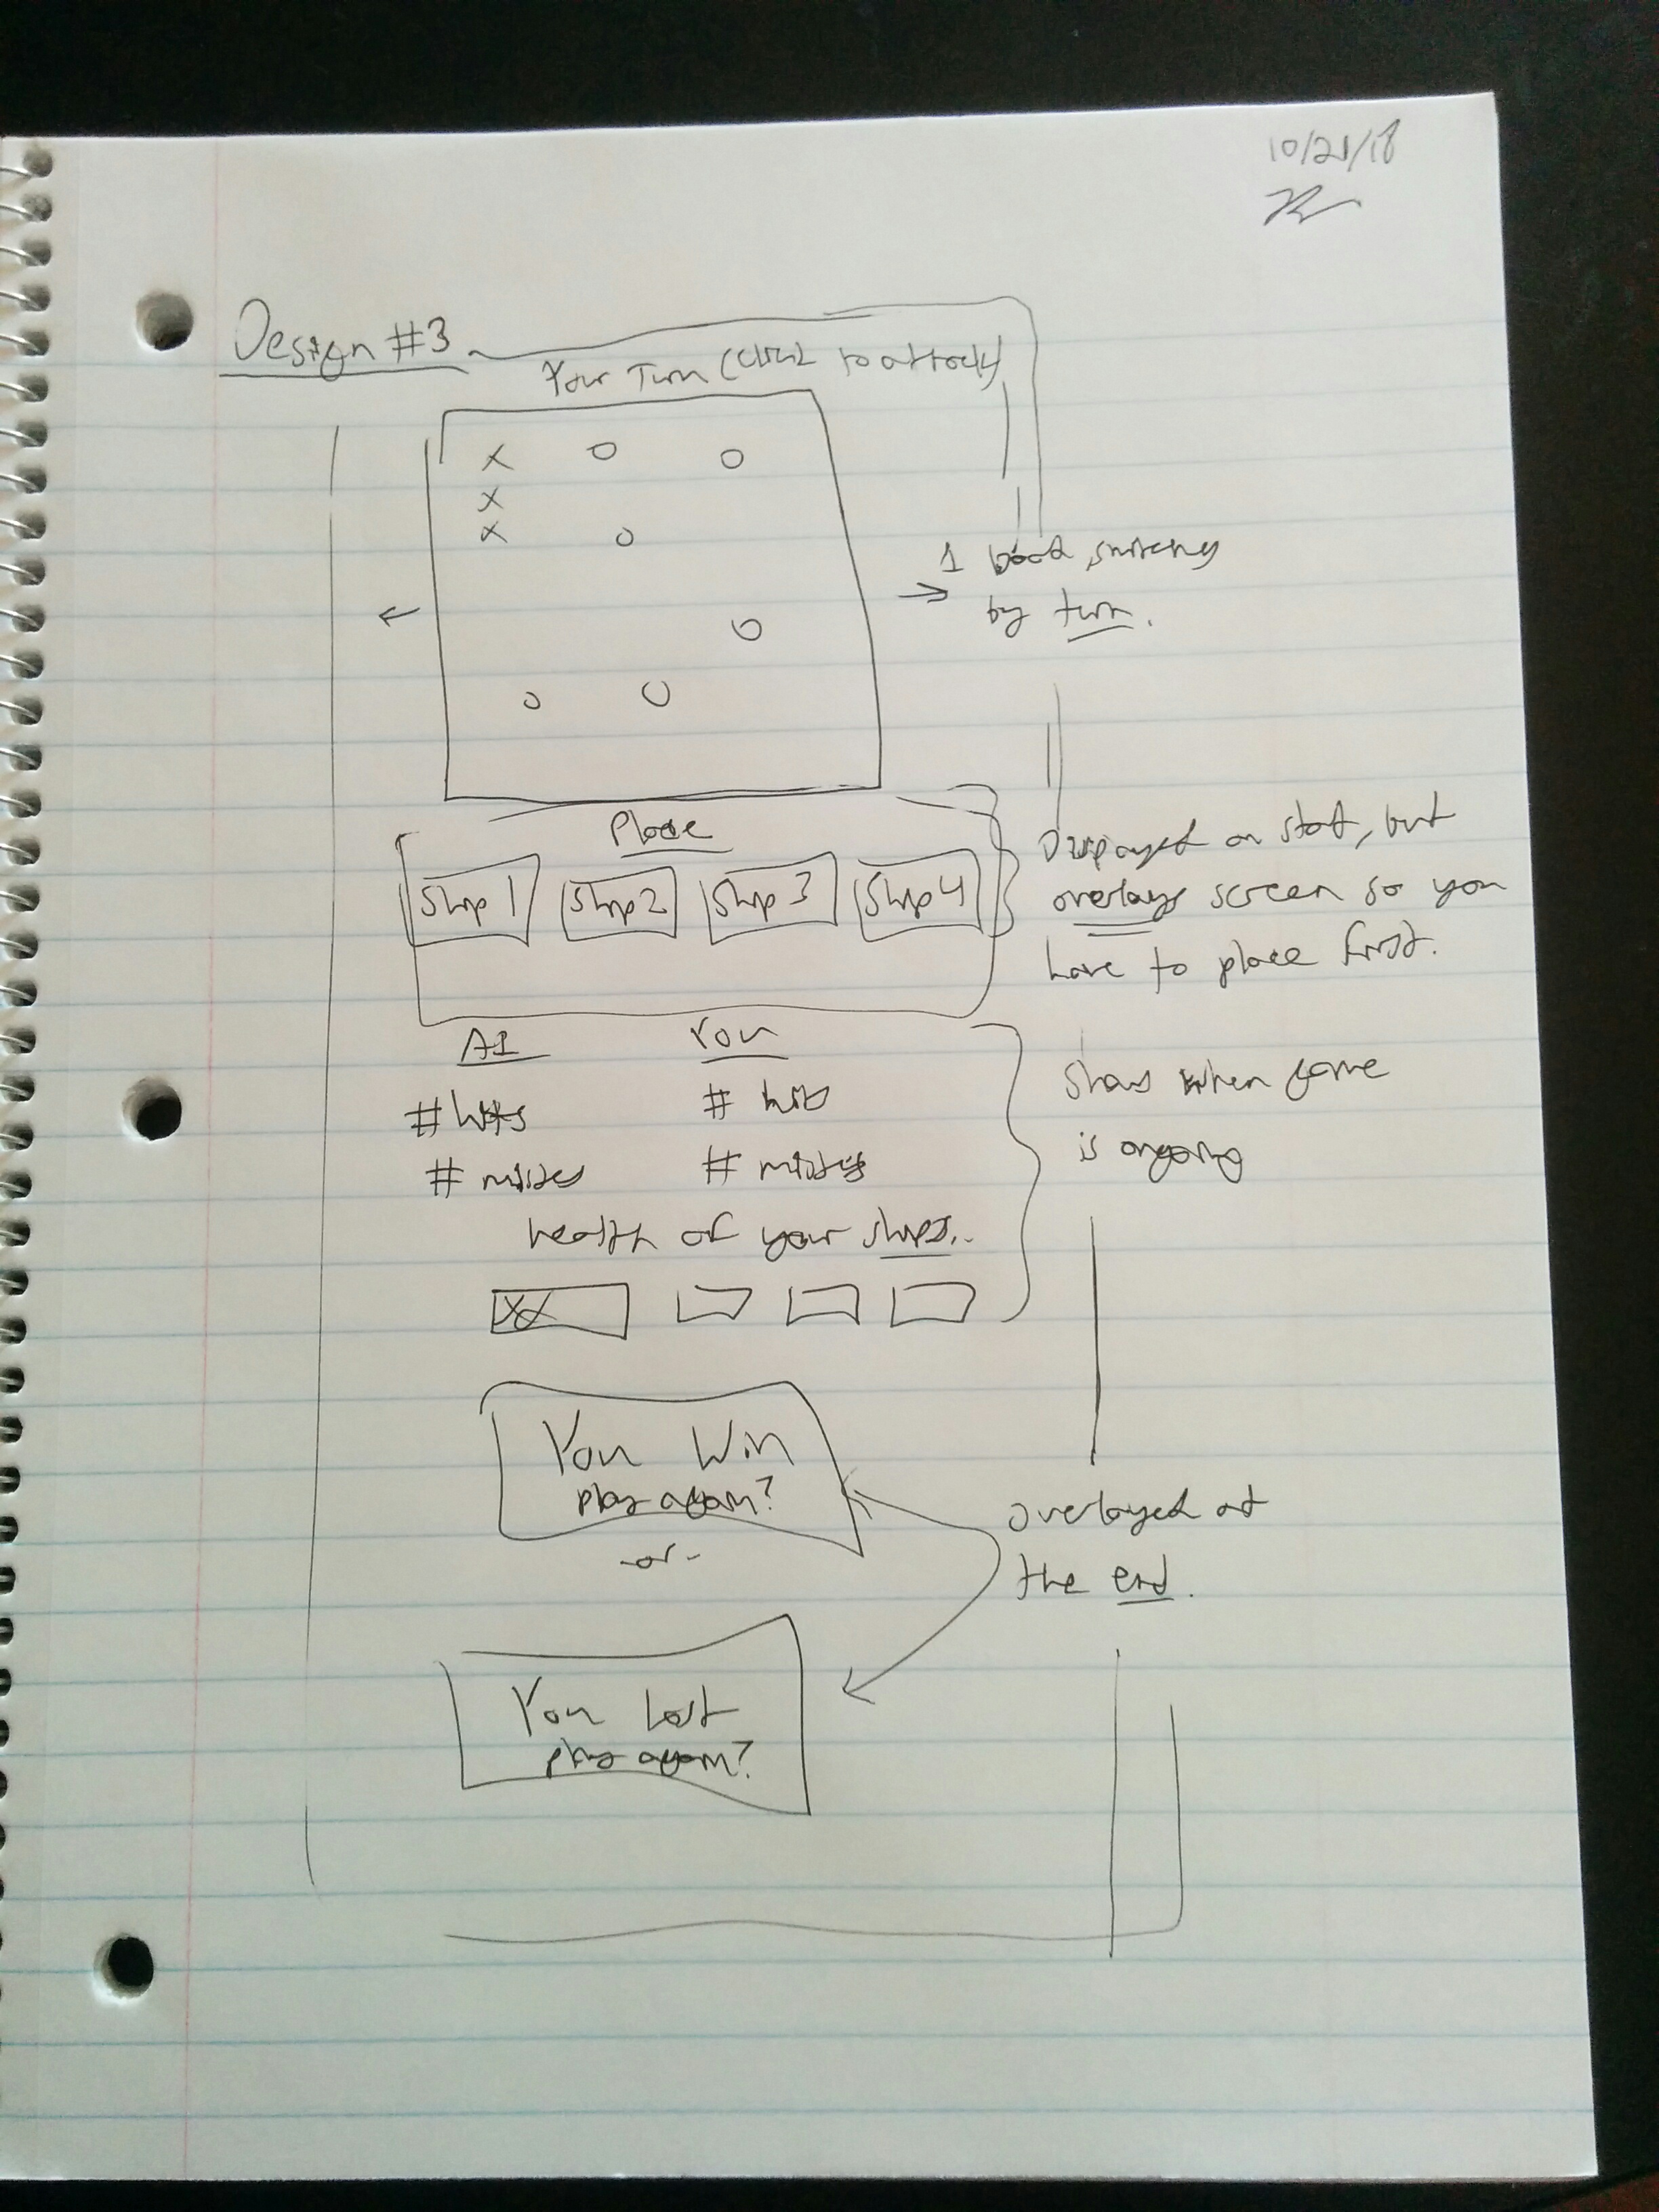 10/21/18
Design #3
Your Turn (click to attack)
X O O
X
X O
O
O O
← → 1 board, switching
by turn.
Place
Ship 1 Ship 2 Ship 3 Ship 4
Displayed on start, but
overlays screen so you
have to place first.
AI You
# hits # hits
# misses # misses
health of your ships..
XX
Shows when game
is ongoing
You Win
play again?
-or-
Overlayed at
the end.
You lost
play again?